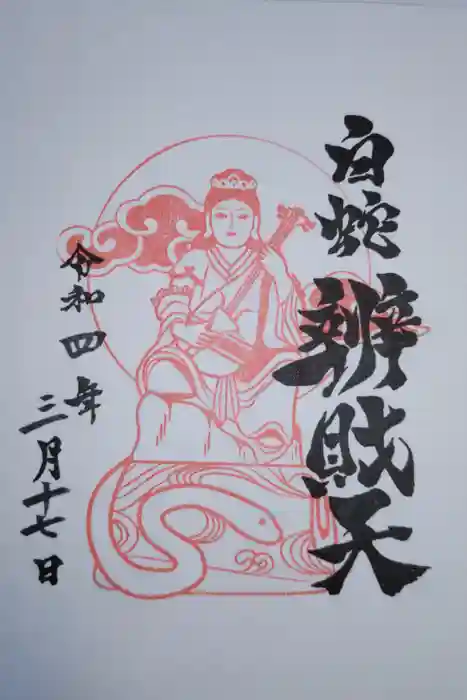 白蛇 辨財天
令和四年
三月十七日